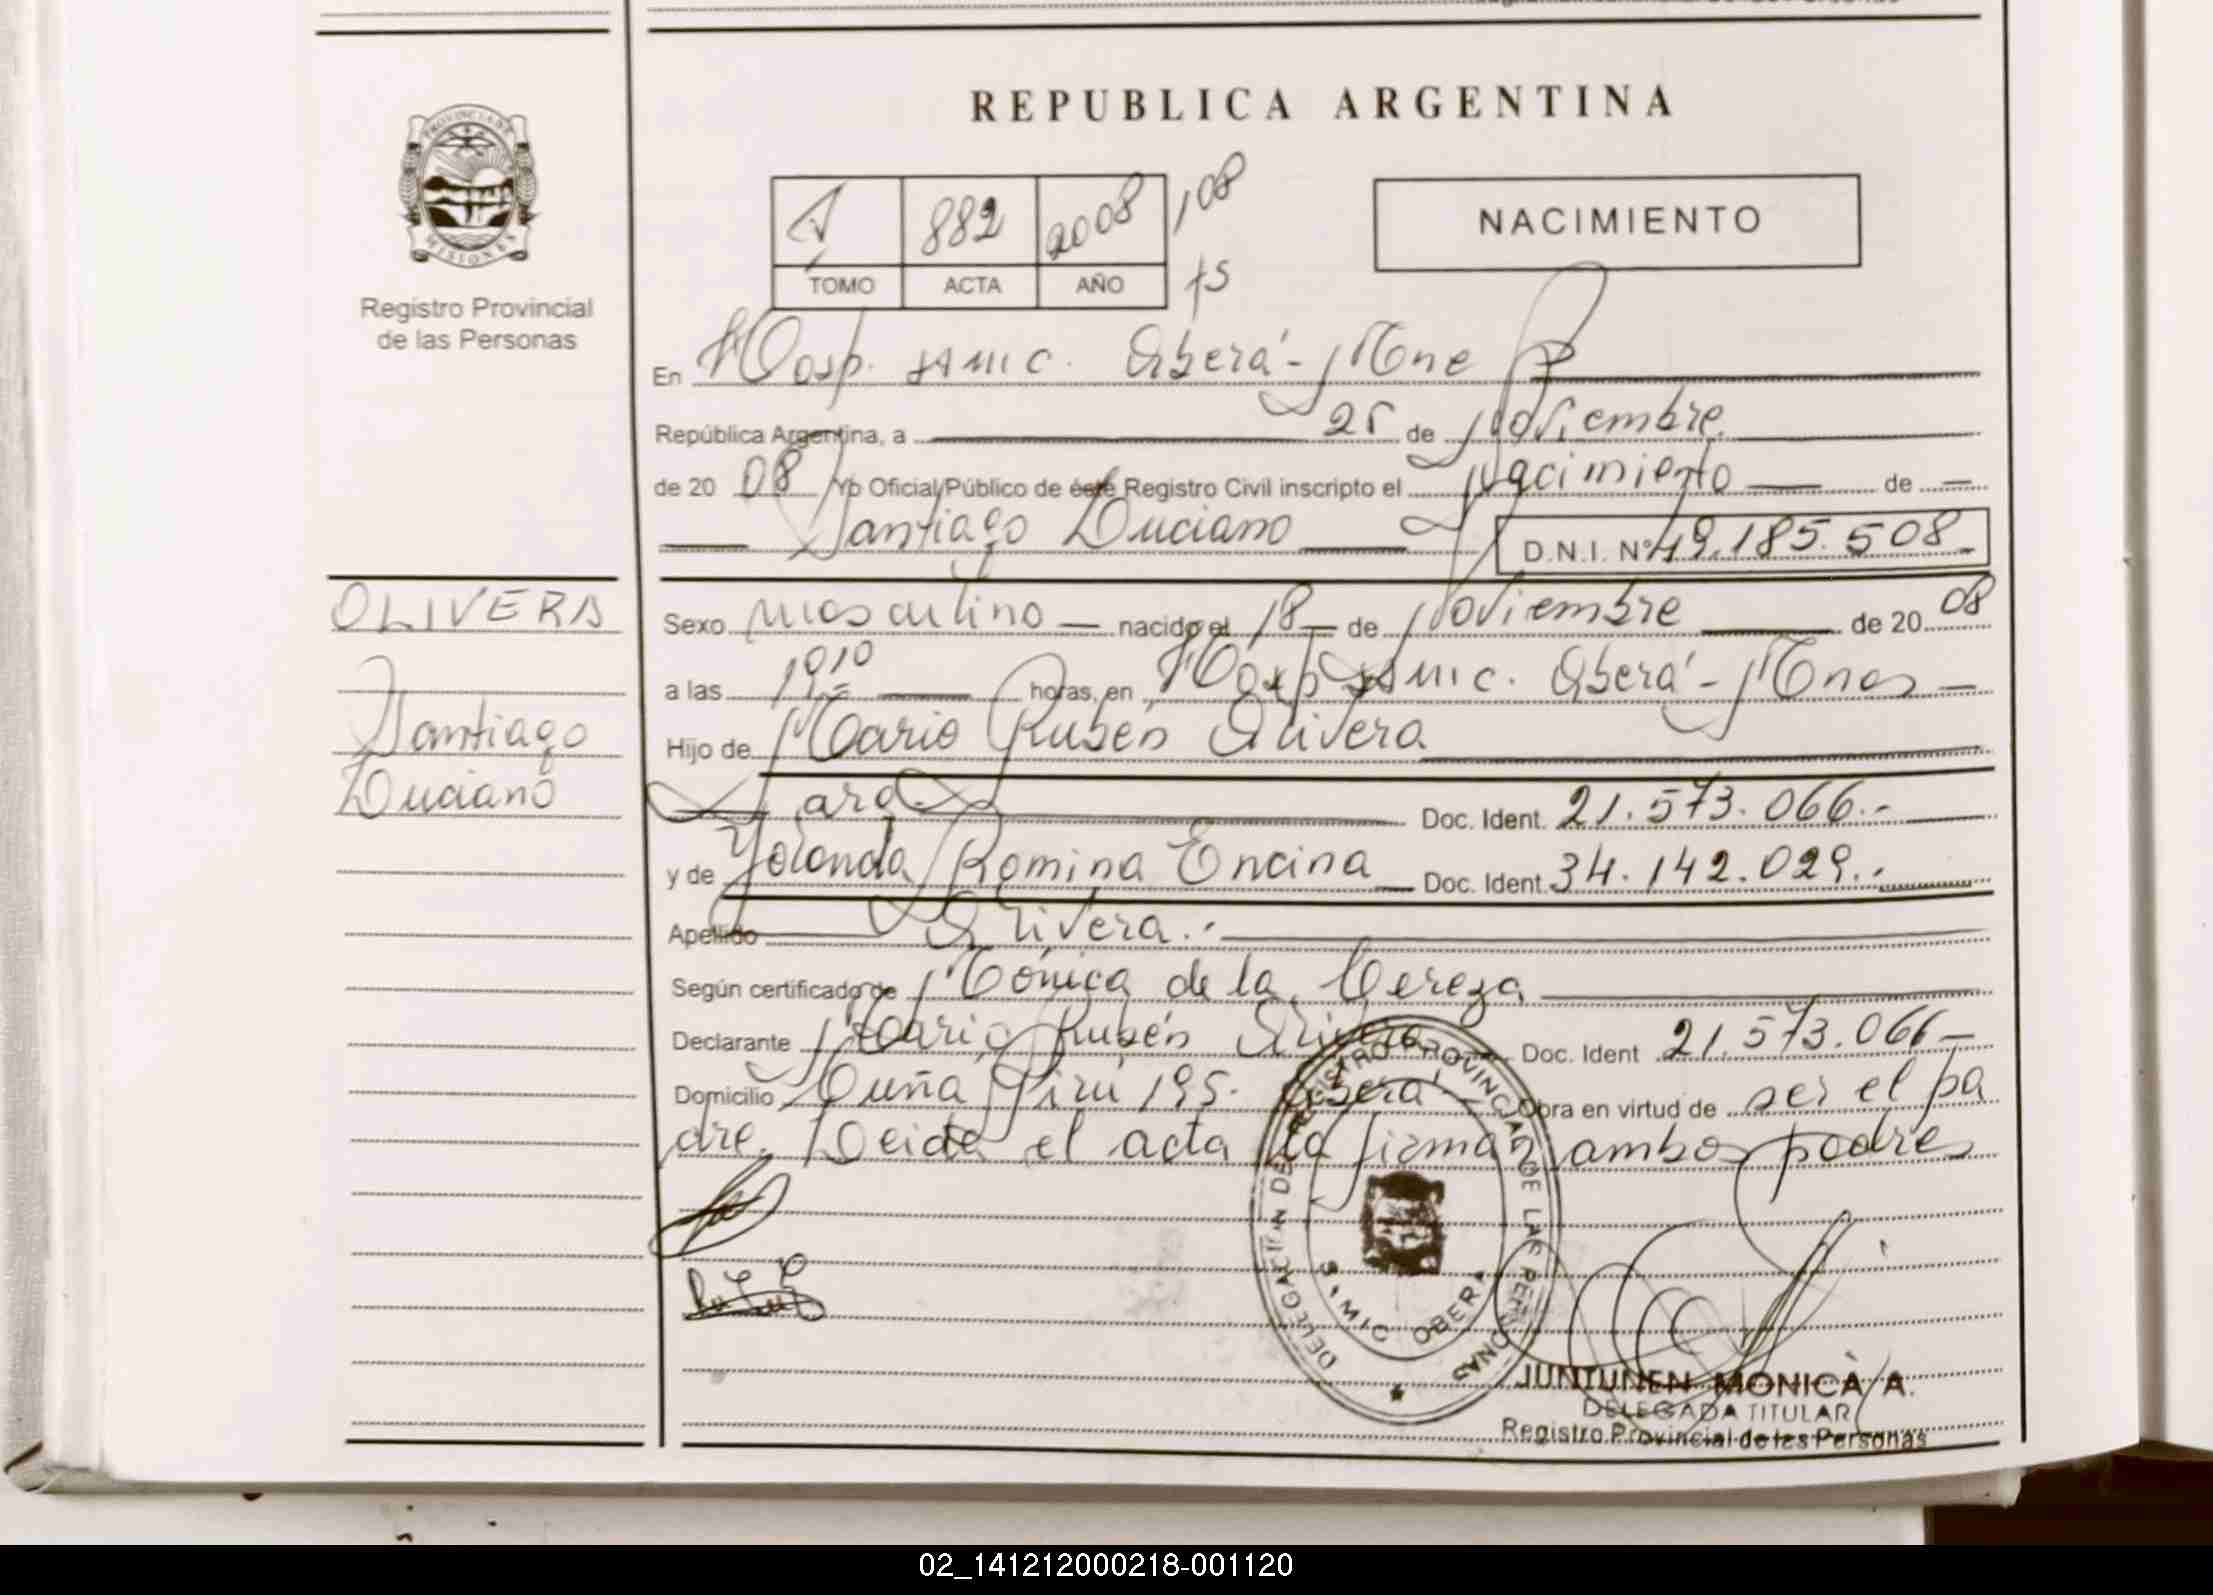 REPUBLICA ARGENTINA
PROVINCIA DE
MISIONES
Registro Provincial
de las Personas
882 2008 108
TOMO ACTA AÑO 75
NACIMIENTO
En Hosp. SAMIC. Oberá - Mne
República Argentina, a 25 de Noviembre
de 20 08 Yo Oficial Público de éste Registro Civil inscripto el Nacimiento de
Santiago Luciano D.N.I. Nº 49.185.508
OLIVERA
Santiago
Luciano
Sexo masculino nacido el 18 de Noviembre de 20 08
a las horas, en Hosp SAMIC. Oberá - Mnes
Hijo de Mario Rubén Olivera
Doc. Ident. 21.573.066.-
y de Yolanda Romina Encina Doc. Ident. 34.142.029.-
Apellido Olivera.-
Según certificado de Mónica de la Cereza
Declarante Mario Rubén Olivera Doc. Ident 21.573.066-
Domicilio Cuña Pirú 195. Oberá - Obra en virtud de ser el pa
dre. Leida el acta la firman ambos padres
DELEGACION DEL REGISTRO PROVINCIAL DE LAS PERSONAS
SAMIC OBERA
JUNTUNEN MONICA A.
DELEGADA TITULAR
Registro Provincial de las Personas
02_141212000218-001120